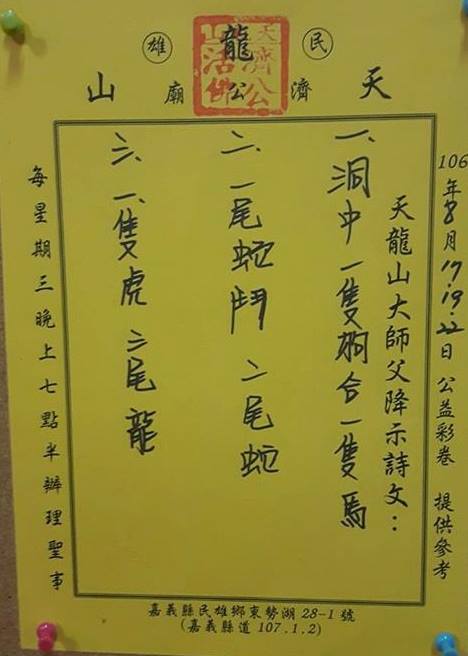 民雄
天龍山
濟公廟
天濟公
山活佛
106年8月17.19.22日 公益彩卷 提供參考
天龍山大師父降示詩文：
一、洞中一隻狗合一隻馬
二、一尾蛇鬥 二尾蛇
三、一隻虎 二尾龍
每星期三晚上七點半辦理聖事
嘉義縣民雄鄉東勢湖28-1號
(嘉義縣道107.1.2)